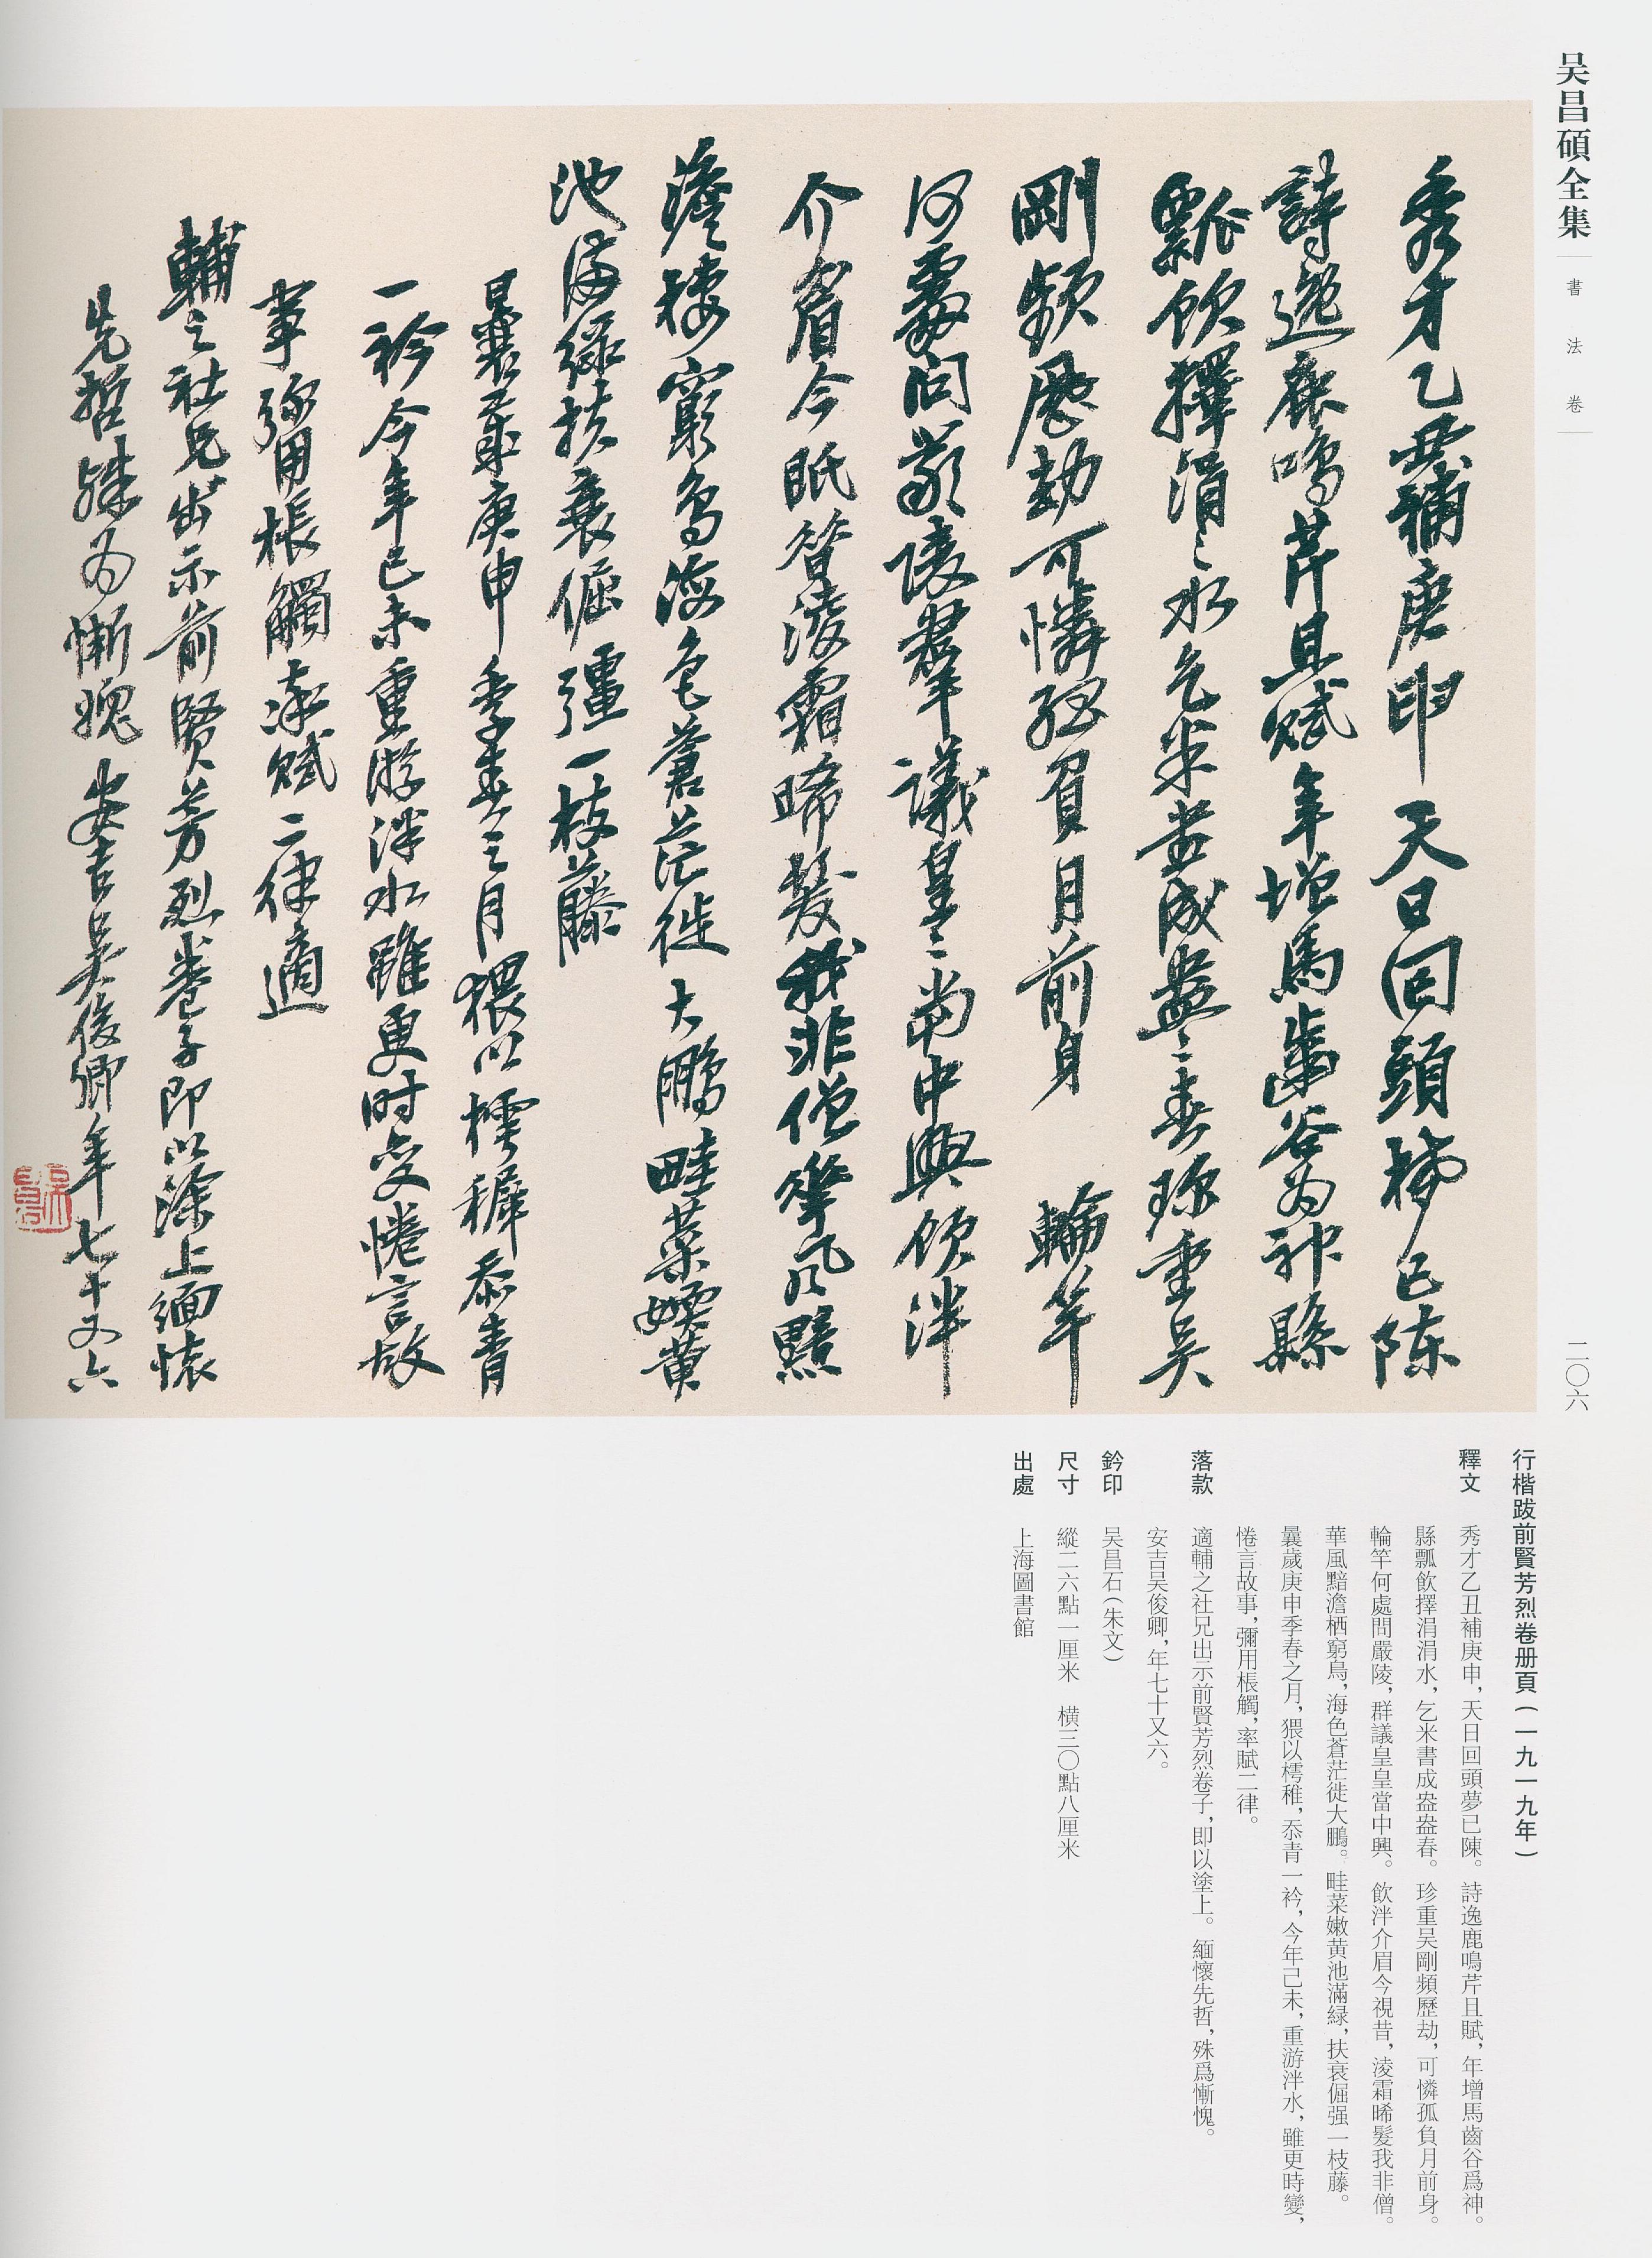 吴昌碩全集
書法卷
二〇六
秀才乙丑補庚申天日回頭夢已陳
詩逸鹿鳴芹且賦年增馬齒谷為神縣
瓢飲擇涓〻水乞米書成盎〻春珍重吴
剛頻歷劫可憐孤負月前身 輪竿
何處問嚴陵群議皇〻當中興飲泮
介眉今眂昔淩霜晞髮我非僧華風黯
澹棲窮鳥海色蒼茫徙大鵬畦菜嫩黄
池滿緑扶衰倔彊一枝藤
曩歲庚申季春之月猥以樗穉忝青
一衿今年已未重游泮水雖更时變惓言故
事弥用棖觸率賦二律適
輔之社兄出示前賢芳烈卷子即以塗上緬懷
先哲殊为慚愧安吉吴俊卿年七十又六
行楷跋前賢芳烈卷册頁(一九一九年)
釋文 秀才乙丑補庚申,天日回頭夢已陳。詩逸鹿鳴芹且賦,年增馬齒谷爲神。
縣瓢飲擇涓涓水,乞米書成盎盎春。珍重吴剛頻歷劫,可憐孤負月前身。
輪竿何處問嚴陵,群議皇皇當中興。飲泮介眉今視昔,淩霜晞髮我非僧。
華風黯澹栖窮鳥,海色蒼茫徙大鵬。畦菜嫩黄池滿緑,扶衰倔强一枝藤。
曩歲庚申季春之月,猥以樗稚,忝青一衿,今年己未,重游泮水,雖更時變,
惓言故事,彌用棖觸,率賦二律。
落款 適輔之社兄出示前賢芳烈卷子,即以塗上。緬懷先哲,殊爲慚愧。
安吉吴俊卿,年七十又六。
鈐印 吴昌石(朱文)
尺寸 縱二六點一厘米 橫三〇點八厘米
出處 上海圖書館